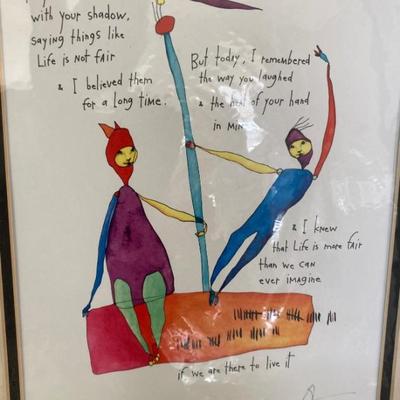 with your shadow,
saying things like
Life is not fair
& I believed them
for a long time.
But today, I remembered
the way you laughed
& the heat of your hand
in
& I knew
that Life is more fair
than we can
ever imagine
if we are there to live it